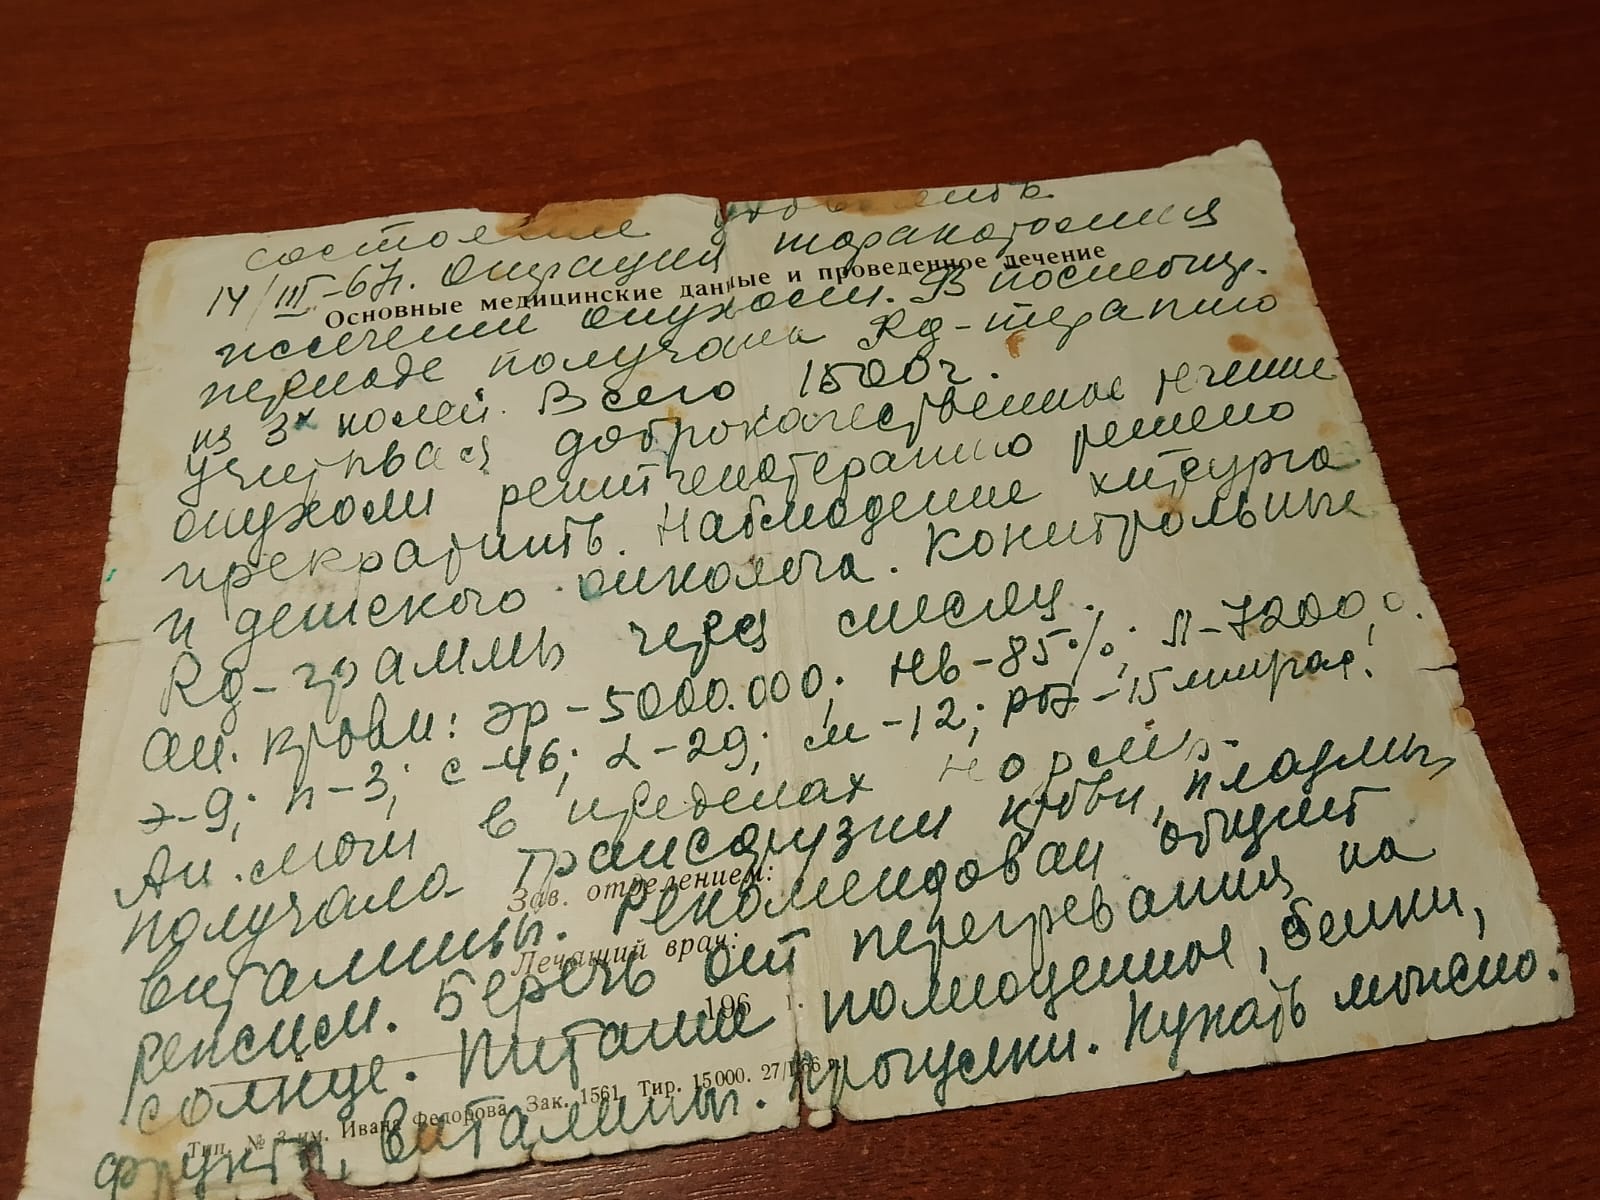 состояние удовлетв.
14/III-67г. Операция торакотомия
Основные медицинские данные и проведенное лечение
иссечении опухоли. В послеопер.
периоде получала Rg-терапию
из 3х полей. Всего 1500г.
Учитывая доброкачественное течение
опухоли рентгенотерапию решено
прекратить. Наблюдение хирурга
и детского онколога. Контрольные
Rg-граммы через месяц.
Ан. крови: эр-5000.000; Нв-85%; Л-7200,0.
э-9; п-3; с-46; л-29; м-12; РОЭ-15
Ан. мочи в пределах нормы.
получала трансфузии крови, плазмы,
Зав. отделением:
витамины. Рекомендован общий
Лечащий врач:
режим. Беречь от перегревания на
196 г.
солнце. Питание полноценное, белки,
Тип. № 3 им. Ивана Федорова. Зак. 1561. Тир. 15000. 27/I-66 г.
фрукты, витамины. Прогулки. Купать можно.